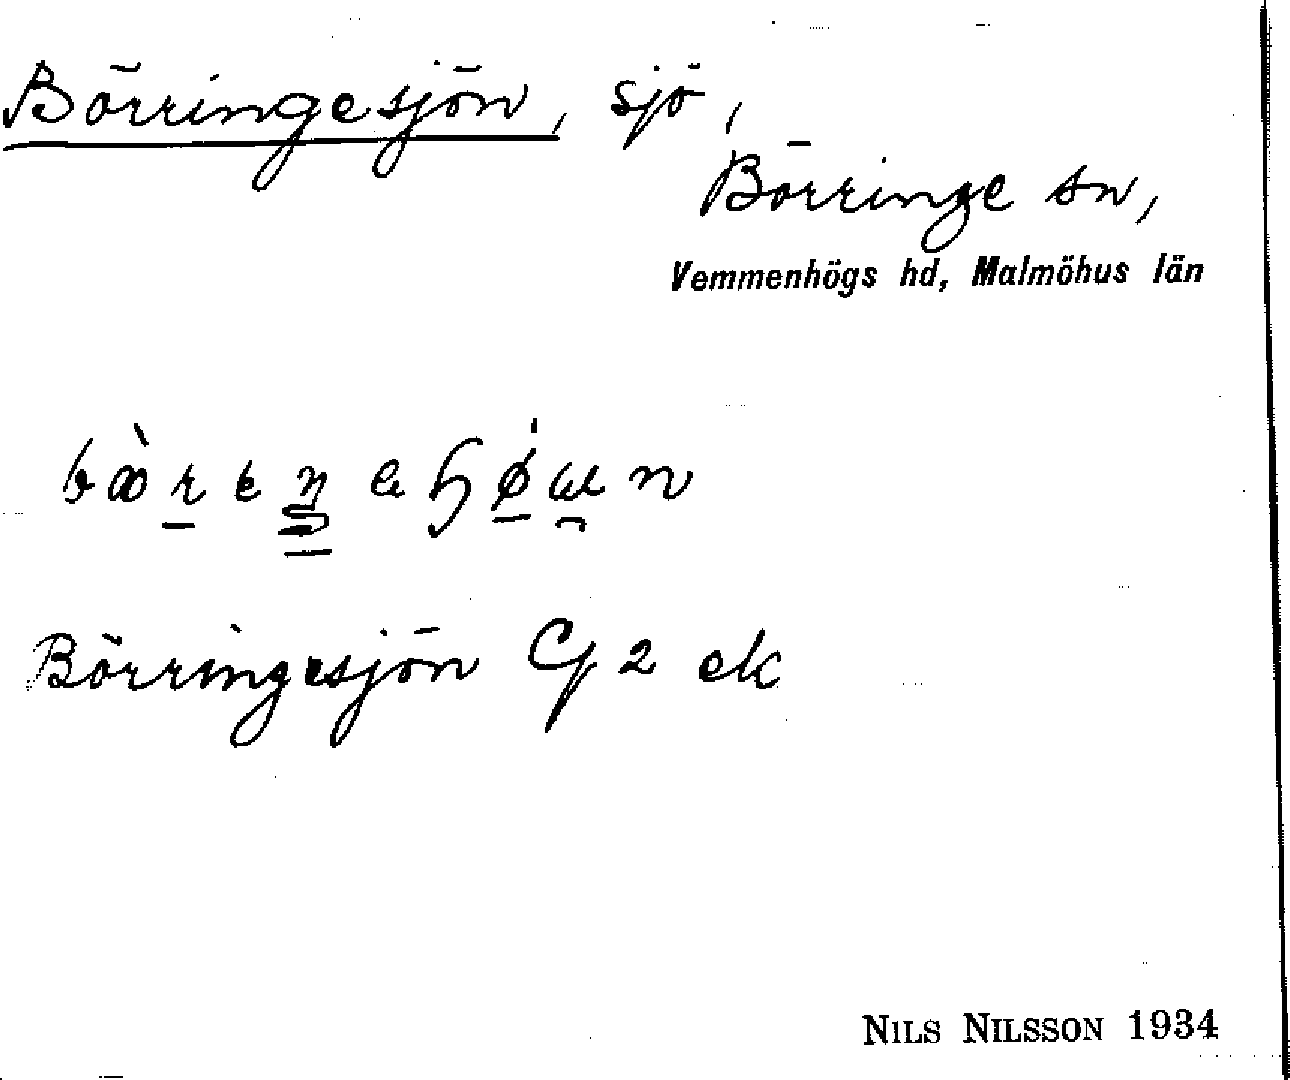 Börringesjön, sjö,
Börringe sn,
Vemmenhögs hd, Malmöhus län
Börringesjön Cf 2 ek
NILS NILSSON 1934